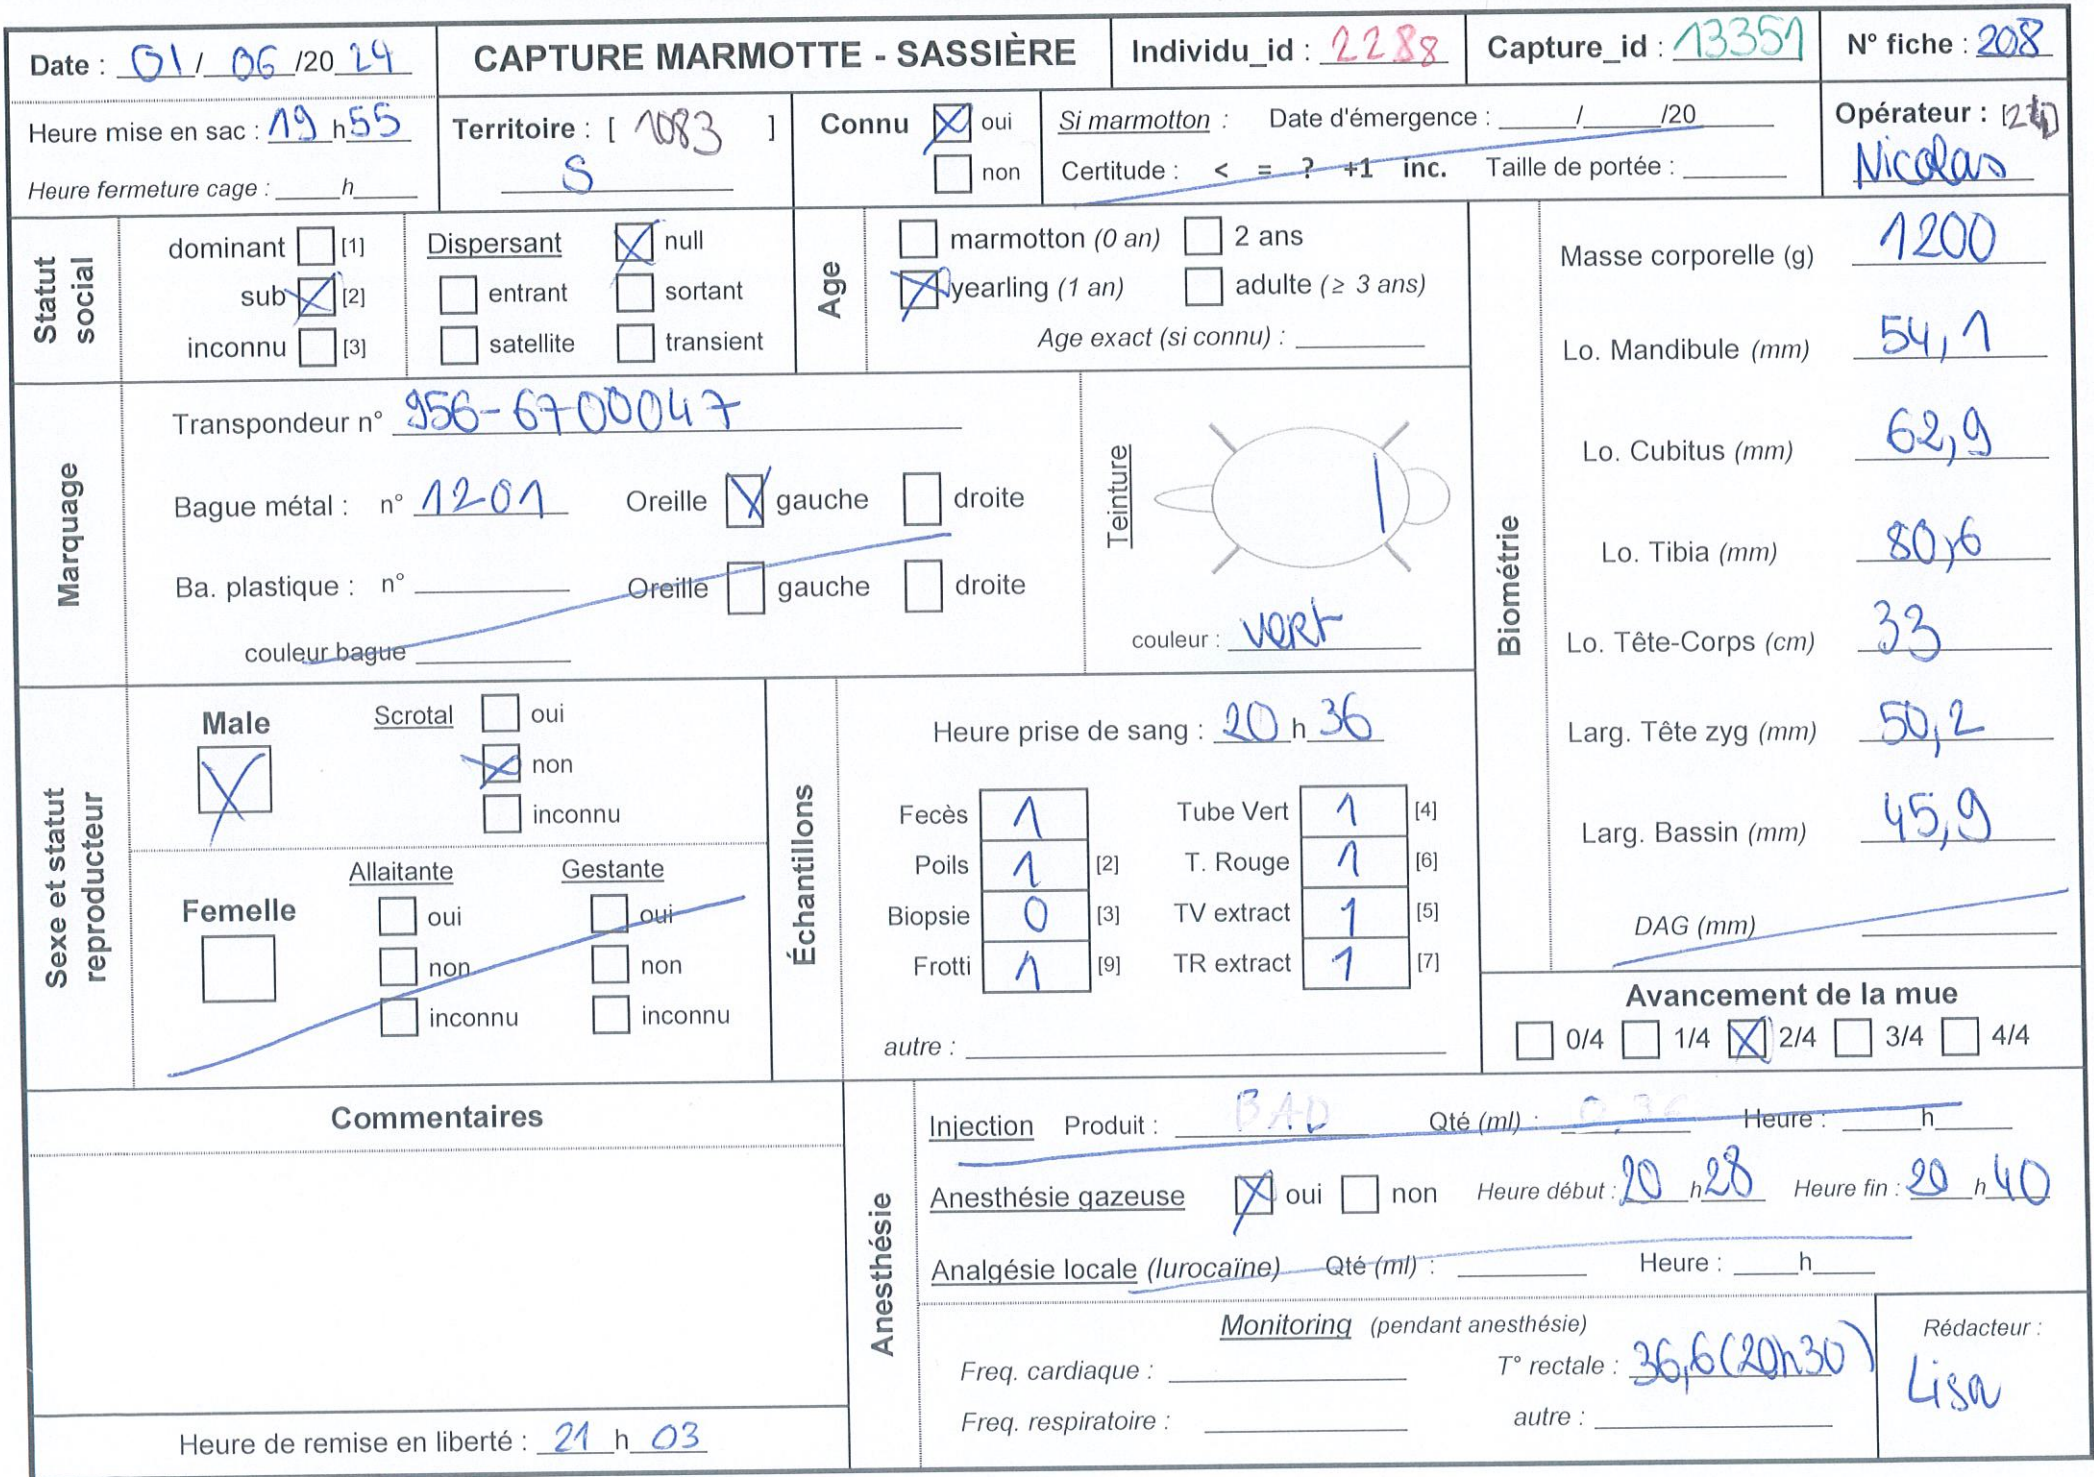 Date : 01/ 06 /20 24 CAPTURE MARMOTTE - SASSIÈRE Individu_id : 2288 Capture_id : 13351 N° fiche : 208
Heure mise en sac : 19 h 55 Territoire : [ 1083 ] Connu oui Si marmotton : Date d'émergence : / /20 Opérateur :
Heure fermeture cage : h S non Certitude : < = ? +1 inc. Taille de portée : Nicolas
Statut social
dominant [1] Dispersant null
sub [2] entrant sortant
inconnu [3] satellite transient
Age
marmotton (0 an) 2 ans
yearling (1 an) adulte (≥ 3 ans)
Age exact (si connu) :
Marquage
Transpondeur n° 956-6700047
Bague métal : n° 1201 Oreille gauche droite
Ba. plastique : n° Oreille gauche droite
couleur bague
Teinture
couleur : vert
Biométrie
Masse corporelle (g) 1200
Lo. Mandibule (mm) 54,1
Lo. Cubitus (mm) 62,9
Lo. Tibia (mm) 80,6
Lo. Tête-Corps (cm) 33
Larg. Tête zyg (mm) 50,2
Larg. Bassin (mm) 45,9
DAG (mm)
Avancement de la mue
0/4 1/4 2/4 3/4 4/4
Sexe et statut reproducteur
Male Scrotal oui
non
inconnu
Femelle Allaitante Gestante
oui oui
non non
inconnu inconnu
Échantillons
Heure prise de sang : 20 h 36
Fecès 1 Tube Vert 1 [4]
Poils 1 [2] T. Rouge 1 [6]
Biopsie 0 [3] TV extract 1 [5]
Frotti 1 [9] TR extract 1 [7]
autre :
Commentaires
Heure de remise en liberté : 21 h 03
Anesthésie
Injection Produit : BAD Qté (ml) : 0,36 Heure : h
Anesthésie gazeuse oui non Heure début : 20 h 28 Heure fin : 20 h 40
Analgésie locale (lurocaïne) Qté (ml) : Heure : h
Monitoring (pendant anesthésie)
Freq. cardiaque : T° rectale : 36,6 (20h30)
Freq. respiratoire : autre :
Rédacteur :
Lisa